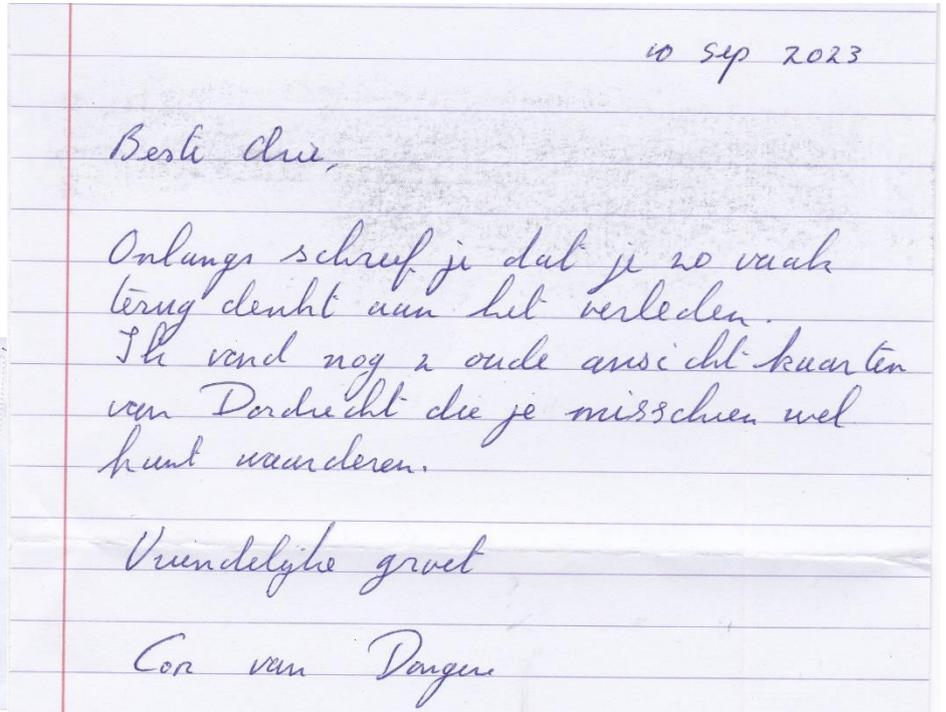 10 sep 2023
Beste
Onlangs schreef je dat je zo vaak
terug denkt aan het verleden.
Ik vond nog 2 oude ansicht kaarten
van Dordrecht die je misschien wel
kunt waarderen.
Vriendelijke groet
Cor van Dongen